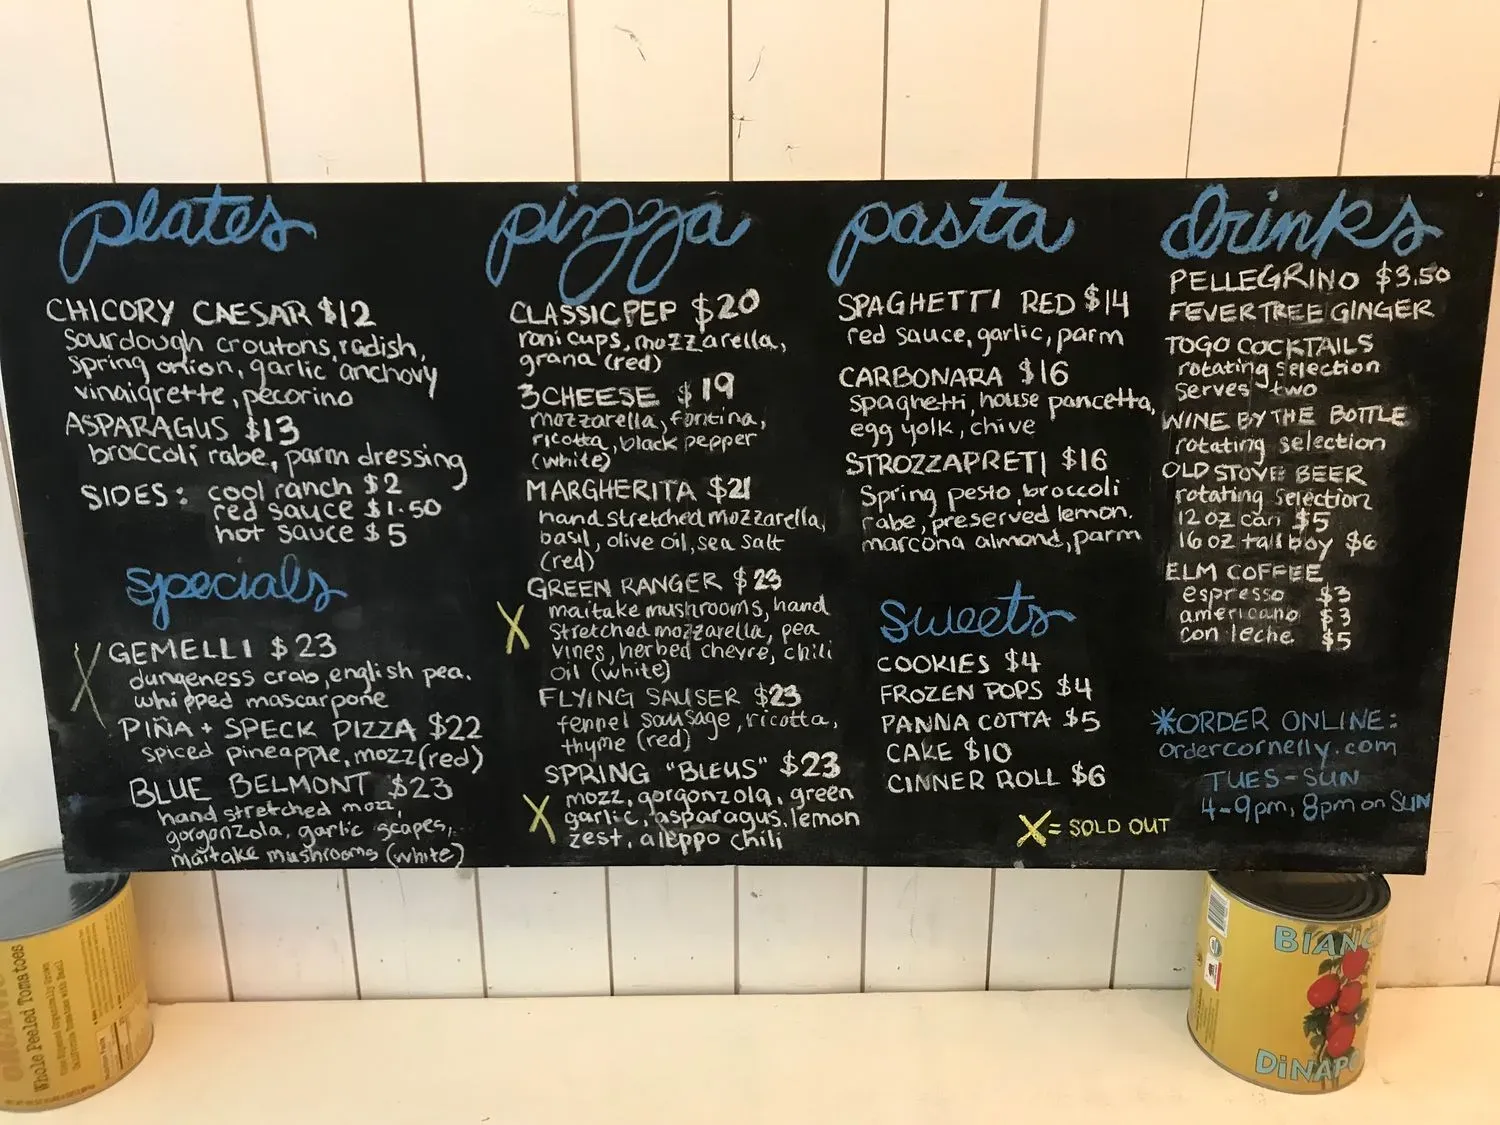 plates
CHICORY CAESAR $12
sourdough croutons, radish,
spring onion, garlic anchovy
vinaigrette, pecorino
ASPARAGUS $13
broccoli rabe, parm dressing
SIDES: cool ranch $2
red sauce $1.50
hot sauce $5
specials
X GEMELLI $23
dungeness crab, english pea.
whipped mascarpone
PIÑA + SPECK PIZZA $22
spiced pineapple, mozz (red)
BLUE BELMONT $23
hand stretched mozz,
gorgonzola, garlic scapes,
maitake mushrooms (white)
pizza
CLASSIC PEP $20
roni cups, mozzarella,
grana (red)
3 CHEESE $19
mozzarella, fontina,
ricotta, black pepper
(white)
MARGHERITA $21
hand stretched mozzarella,
basil, olive oil, sea salt
(red)
GREEN RANGER $23
X maitake mushrooms, hand
stretched mozzarella, pea
vines, herbed chevre, chili
oil (white)
FLYING SAUSER $23
fennel sausage, ricotta,
thyme (red)
SPRING "BLEUS" $23
X mozz, gorgonzola, green
garlic, asparagus, lemon
zest, aleppo chili
pasta
SPAGHETTI RED $14
red sauce, garlic, parm
CARBONARA $16
spaghetti, house pancetta,
egg yolk, chive
STROZZAPRETI $16
Spring pesto, broccoli
rabe, preserved lemon.
marcona almond, parm
sweets
COOKIES $4
FROZEN POPS $4
PANNA COTTA $5
CAKE $10
CINNER ROLL $6
X = SOLD OUT
Drinks
PELLEGRINO $3.50
FEVER TREE GINGER
TOGO COCKTAILS
rotating selection
serves two
WINE BY THE BOTTLE
rotating selection
OLD STOVE BEER
rotating selection
12 oz can $5
16 oz tallboy $6
ELM COFFEE
espresso $3
americano $3
con leche $5
*ORDER ONLINE:
ordercornelly.com
TUES-SUN
4-9pm, 8pm on SUN
Whole Peeled Tomatoes
BIANC
DiNAPO